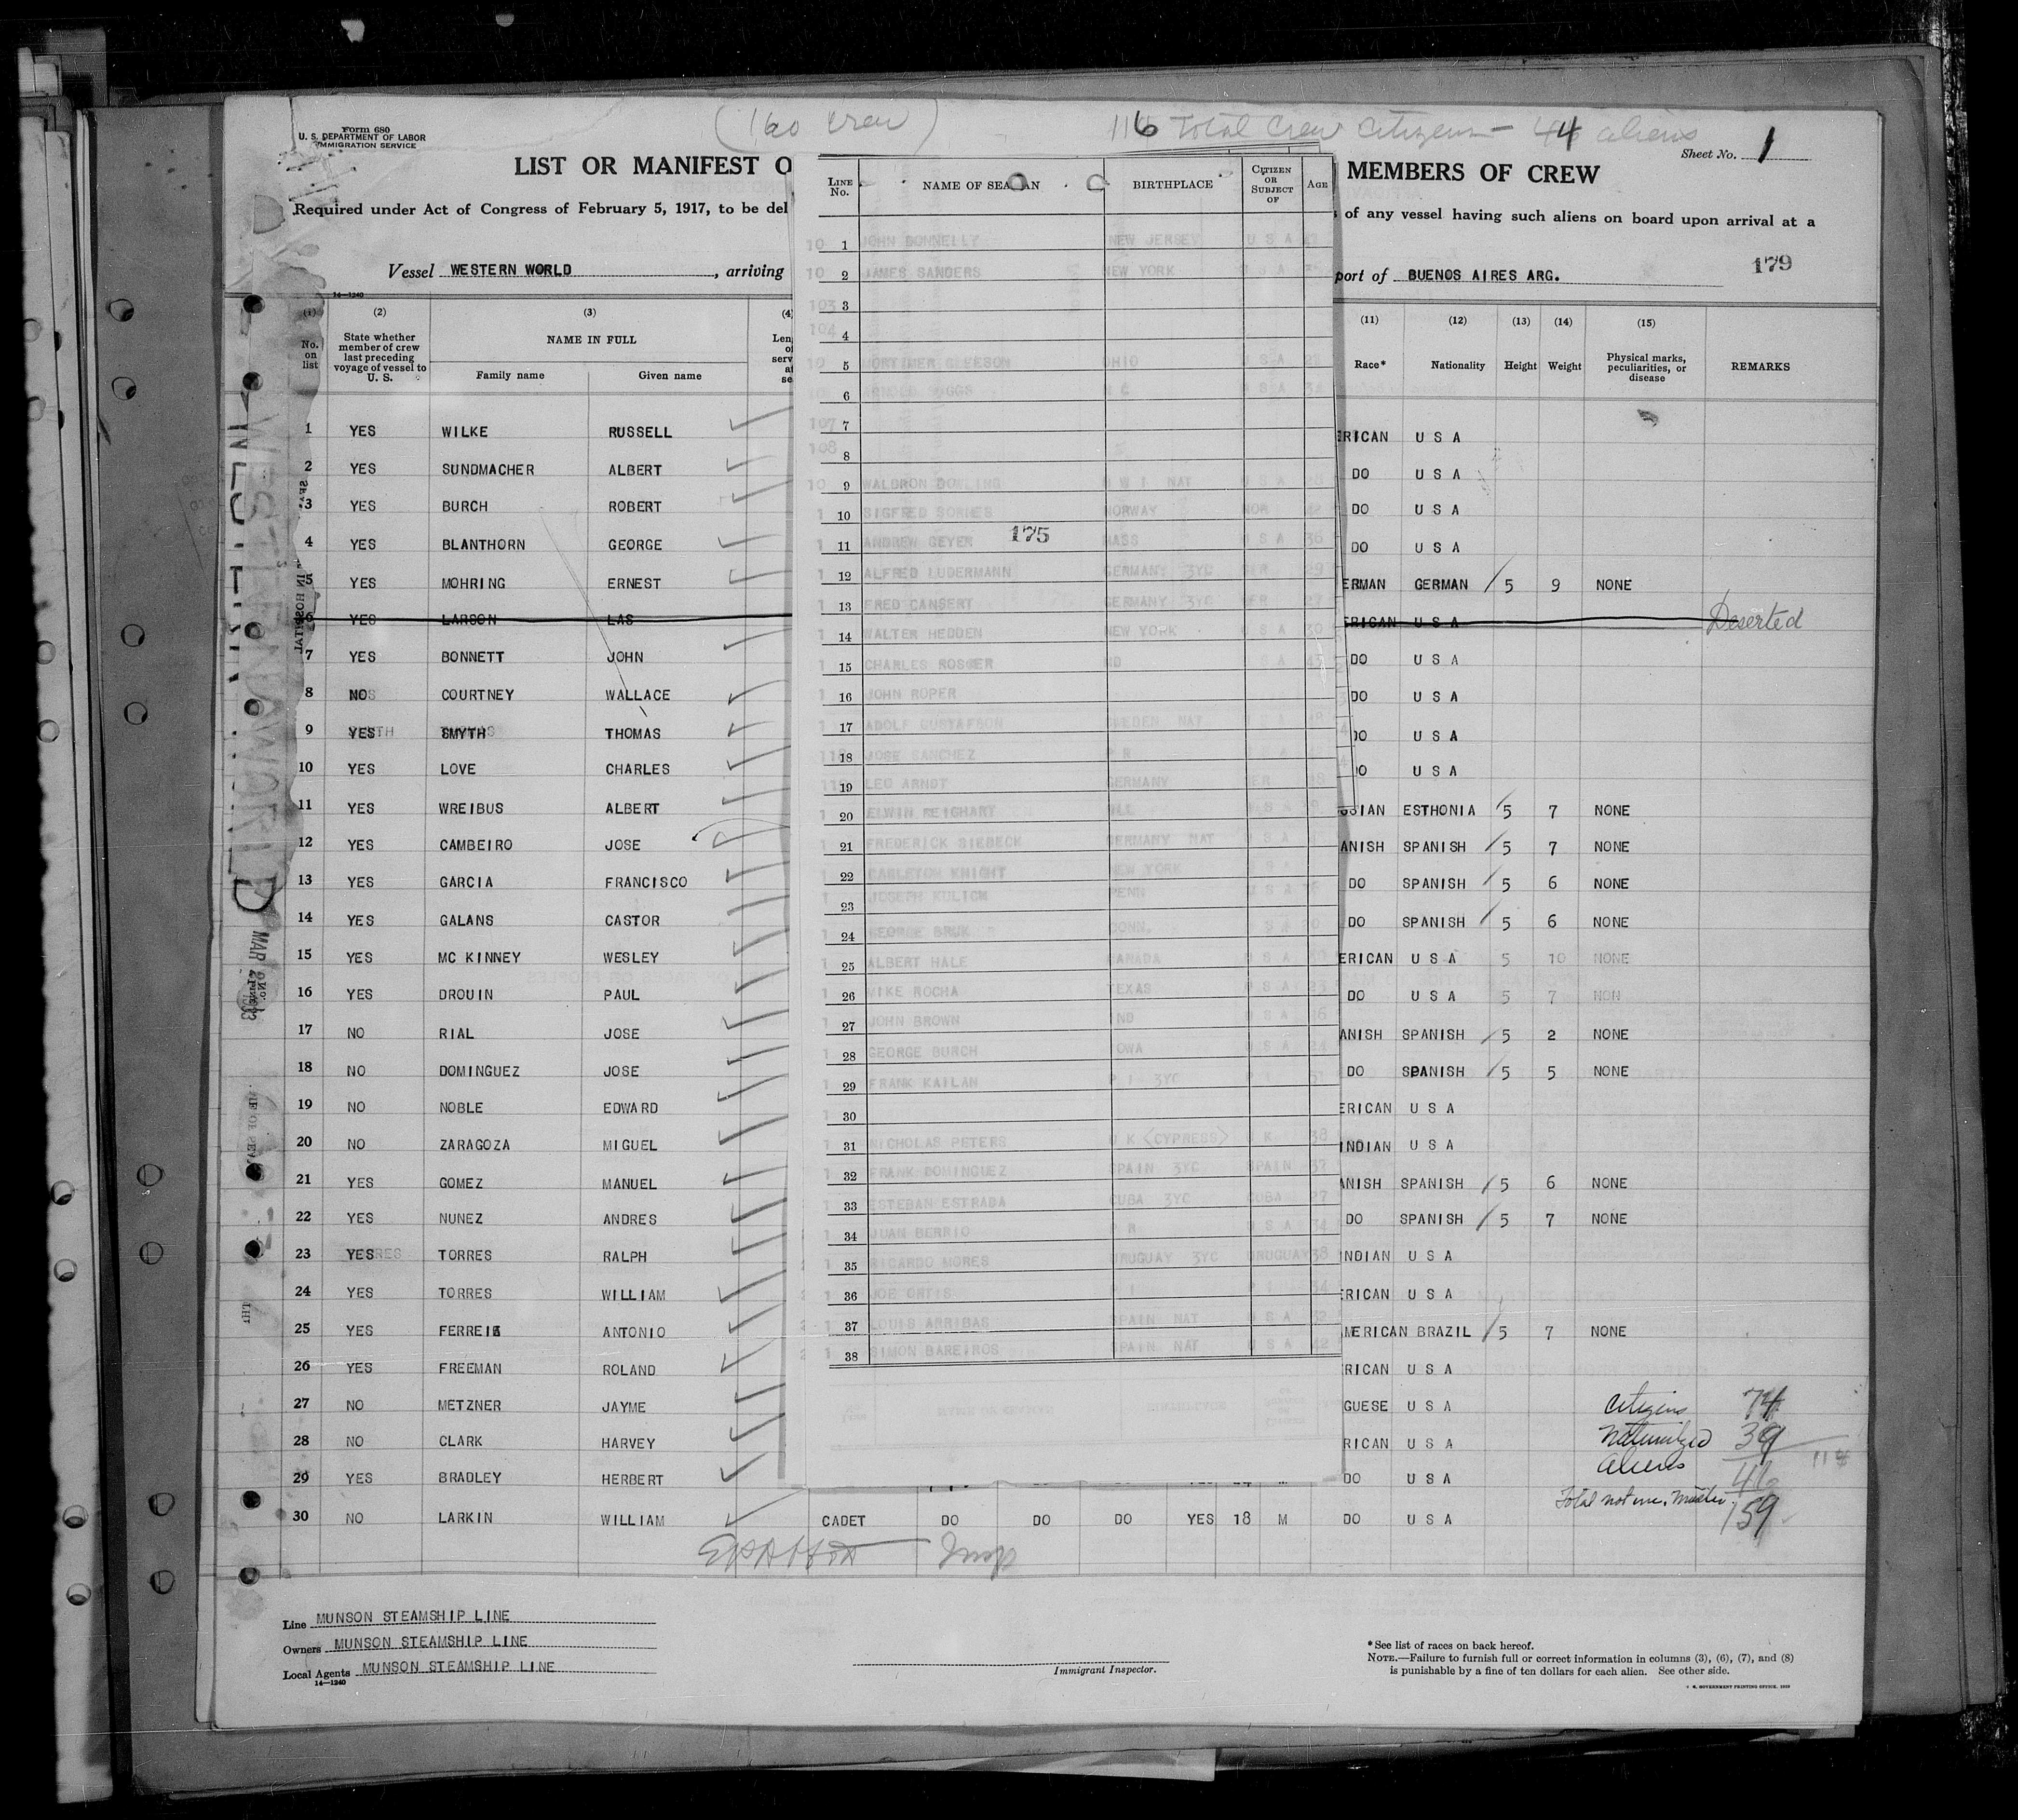 Form 680
U. S. DEPARTMENT OF LABOR
IMMIGRATION SERVICE
(160 crew)
116 Total Crew Citizens - 44 aliens
Sheet No. 1
LIST OR MANIFEST O
MEMBERS OF CREW
Required under Act of Congress of February 5, 1917, to be del
of any vessel having such aliens on board upon arrival at a
Vessel WESTERN WORLD, arriving
port of BUENOS AIRES ARG.
179
14—1240
(1) (2) (3) (4)
No. on list
State whether member of crew last preceding voyage of vessel to U. S.
NAME IN FULL
Family name Given name
(11) (12) (13) (14) (15)
Race* Nationality Height Weight Physical marks, peculiarities, or disease REMARKS
1 YES WILKE RUSSELL ERICAN U S A
2 YES SUNDMACHER ALBERT DO U S A
3 YES BURCH ROBERT DO U S A
4 YES BLANTHORN GEORGE DO U S A
5 YES MOHRING ERNEST ERMAN GERMAN 5 9 NONE
6 YES LARSON LAS ERICAN U S A Deserted
7 YES BONNETT JOHN DO U S A
8 NO COURTNEY WALLACE DO U S A
9 YES SMYTH THOMAS DO U S A
10 YES LOVE CHARLES DO U S A
11 YES WREIBUS ALBERT SSIAN ESTHONIA 5 7 NONE
12 YES CAMBEIRO JOSE ANISH SPANISH 5 7 NONE
13 YES GARCIA FRANCISCO DO SPANISH 5 6 NONE
14 YES GALANS CASTOR DO SPANISH 5 6 NONE
15 YES MC KINNEY WESLEY ERICAN U S A 5 10 NONE
16 YES DROUIN PAUL DO U S A 5 7 NON
17 NO RIAL JOSE ANISH SPANISH 5 2 NONE
18 NO DOMINGUEZ JOSE DO SPANISH 5 5 NONE
19 NO NOBLE EDWARD ERICAN U S A
20 NO ZARAGOZA MIGUEL INDIAN U S A
21 YES GOMEZ MANUEL ANISH SPANISH 5 6 NONE
22 YES NUNEZ ANDRES DO SPANISH 5 7 NONE
23 YES TORRES RALPH NDIAN U S A
24 YES TORRES WILLIAM ERICAN U S A
25 YES ANTONIO MERICAN BRAZIL 5 7 NONE
26 YES FREEMAN ROLAND RICAN U S A
27 NO METZNER JAYME GUESE U S A
28 NO CLARK HARVEY RICAN U S A
29 YES BRADLEY HERBERT DO U S A
30 NO LARKIN WILLIAM CADET DO DO DO YES 18 M DO U S A
Citizens 74
Naturalized 39
Aliens 46
159
LINE No. NAME OF SEAMAN BIRTHPLACE CITIZEN OR SUBJECT OF AGE
1 JOHN DONNELLY NEW JERSEY U S A
2 JAMES SANDERS NEW YORK
3
4
5 MORTIMER GLEESON OHIO U S A
6 N C U S A
7
8
9 WALDRON DOWLING W I NAT U S A
10 SIGFRED NORWAY NOR 42
175
11 ANDREW GEYER MASS U S A 36
12 ALFRED LUDERMANN GERMANY 3YC GER 29
13 FRED CANSERT GERMANY 3YC GER 27
14 WALTER HEDDEN NEW YORK U S A 30
15 CHARLES ROSGER MD U S A
16 JOHN ROPER
17 ADOLF GUSTAFSON SWEDEN NAT U S A
18 JOSE SANCHEZ P R
19 LEO ARNDT GERMANY GER
20 ELWIN REICHART ILL U S A
21 FREDERICK SIEBECK GERMANY NAT U S A
22 CARLETON KNIGHT NEW YORK U S A
23 JOSEPH KULICH PENN U S A
24 GEORGE BRUK CONN. U S A
25 ALBERT HALE CANADA U S A
26 MIKE ROCHA TEXAS U S A 23
27 JOHN BROWN IND U S A
28 GEORGE BURCH IOWA U S A 24
29 FRANK KAILAN P I 3YC P I
30
31 NICHOLAS PETERS U K (CYPRESS) U K 38
32 FRANK DOMINGUEZ SPAIN 3YC SPAIN 37
33 ESTEBAN ESTRADA CUBA 3YC CUBA 27
34 JUAN BERRIO P R U S A 34
35 RICARDO MORES URUGUAY 3YC URUGUAY 38
36 JOE ORTIS P I P I 34
37 LOUIS ARRIBAS SPAIN NAT U S A 32
38 SIMON BAREIROS SPAIN NAT U S A 42
Line MUNSON STEAMSHIP LINE
Owners MUNSON STEAMSHIP LINE
Local Agents MUNSON STEAMSHIP LINE
14—1240
Immigrant Inspector.
*See list of races on back hereof.
NOTE.—Failure to furnish full or correct information in columns (3), (6), (7), and (8)
is punishable by a fine of ten dollars for each alien. See other side.